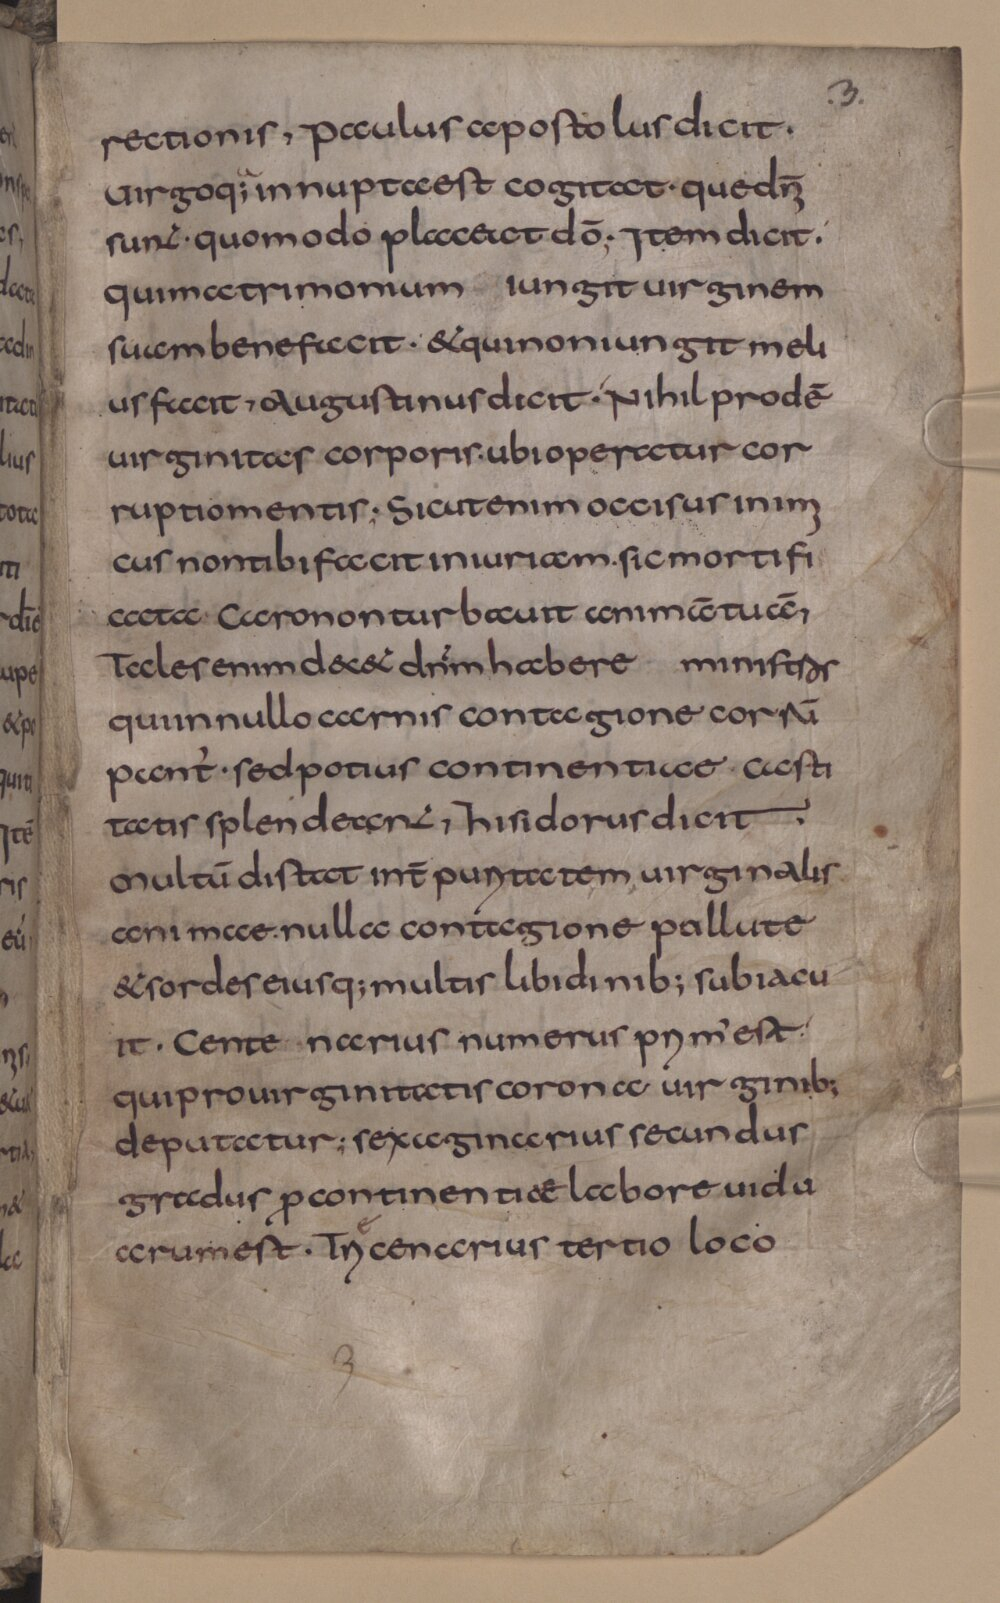 .3.
rectionis, Paulus apostolus dicit.
Uirgoq; innupta est cogitat. que dn̄i
sunt. quomodo placeat dō; Item dicit.
qui matrimonium iungit uirginem
suam bene facit. & qui non iungit meli
us facit, Augustinus dicit. Nihil prodē
uirginitas corporis. ubi operatur cor
ruptio mentis; Sicut enim occisus inimi
cus non tibi facit iniuriam. sic mortifi
cata Caro non turbauit animā tuā,
Tales enim dec& dnm habere ministros
qui in nullo carnis contagione corrū
pant̄. sed potius continentiae casti
tatis splendeant, hisidorus dicit.
Multū distat int̄ puritatem uirginalis
animae. nulla contagione pallute
& sordes eiusq; multis libidinib; subiacu
it. Cente narius numerus prim' est.
qui pro uirginitatis corona uirginib;
deputatur; sexaginarius secundus
gradus ꝓ continentiae labore uidu
arum est. Tricenarius tertio loco
3